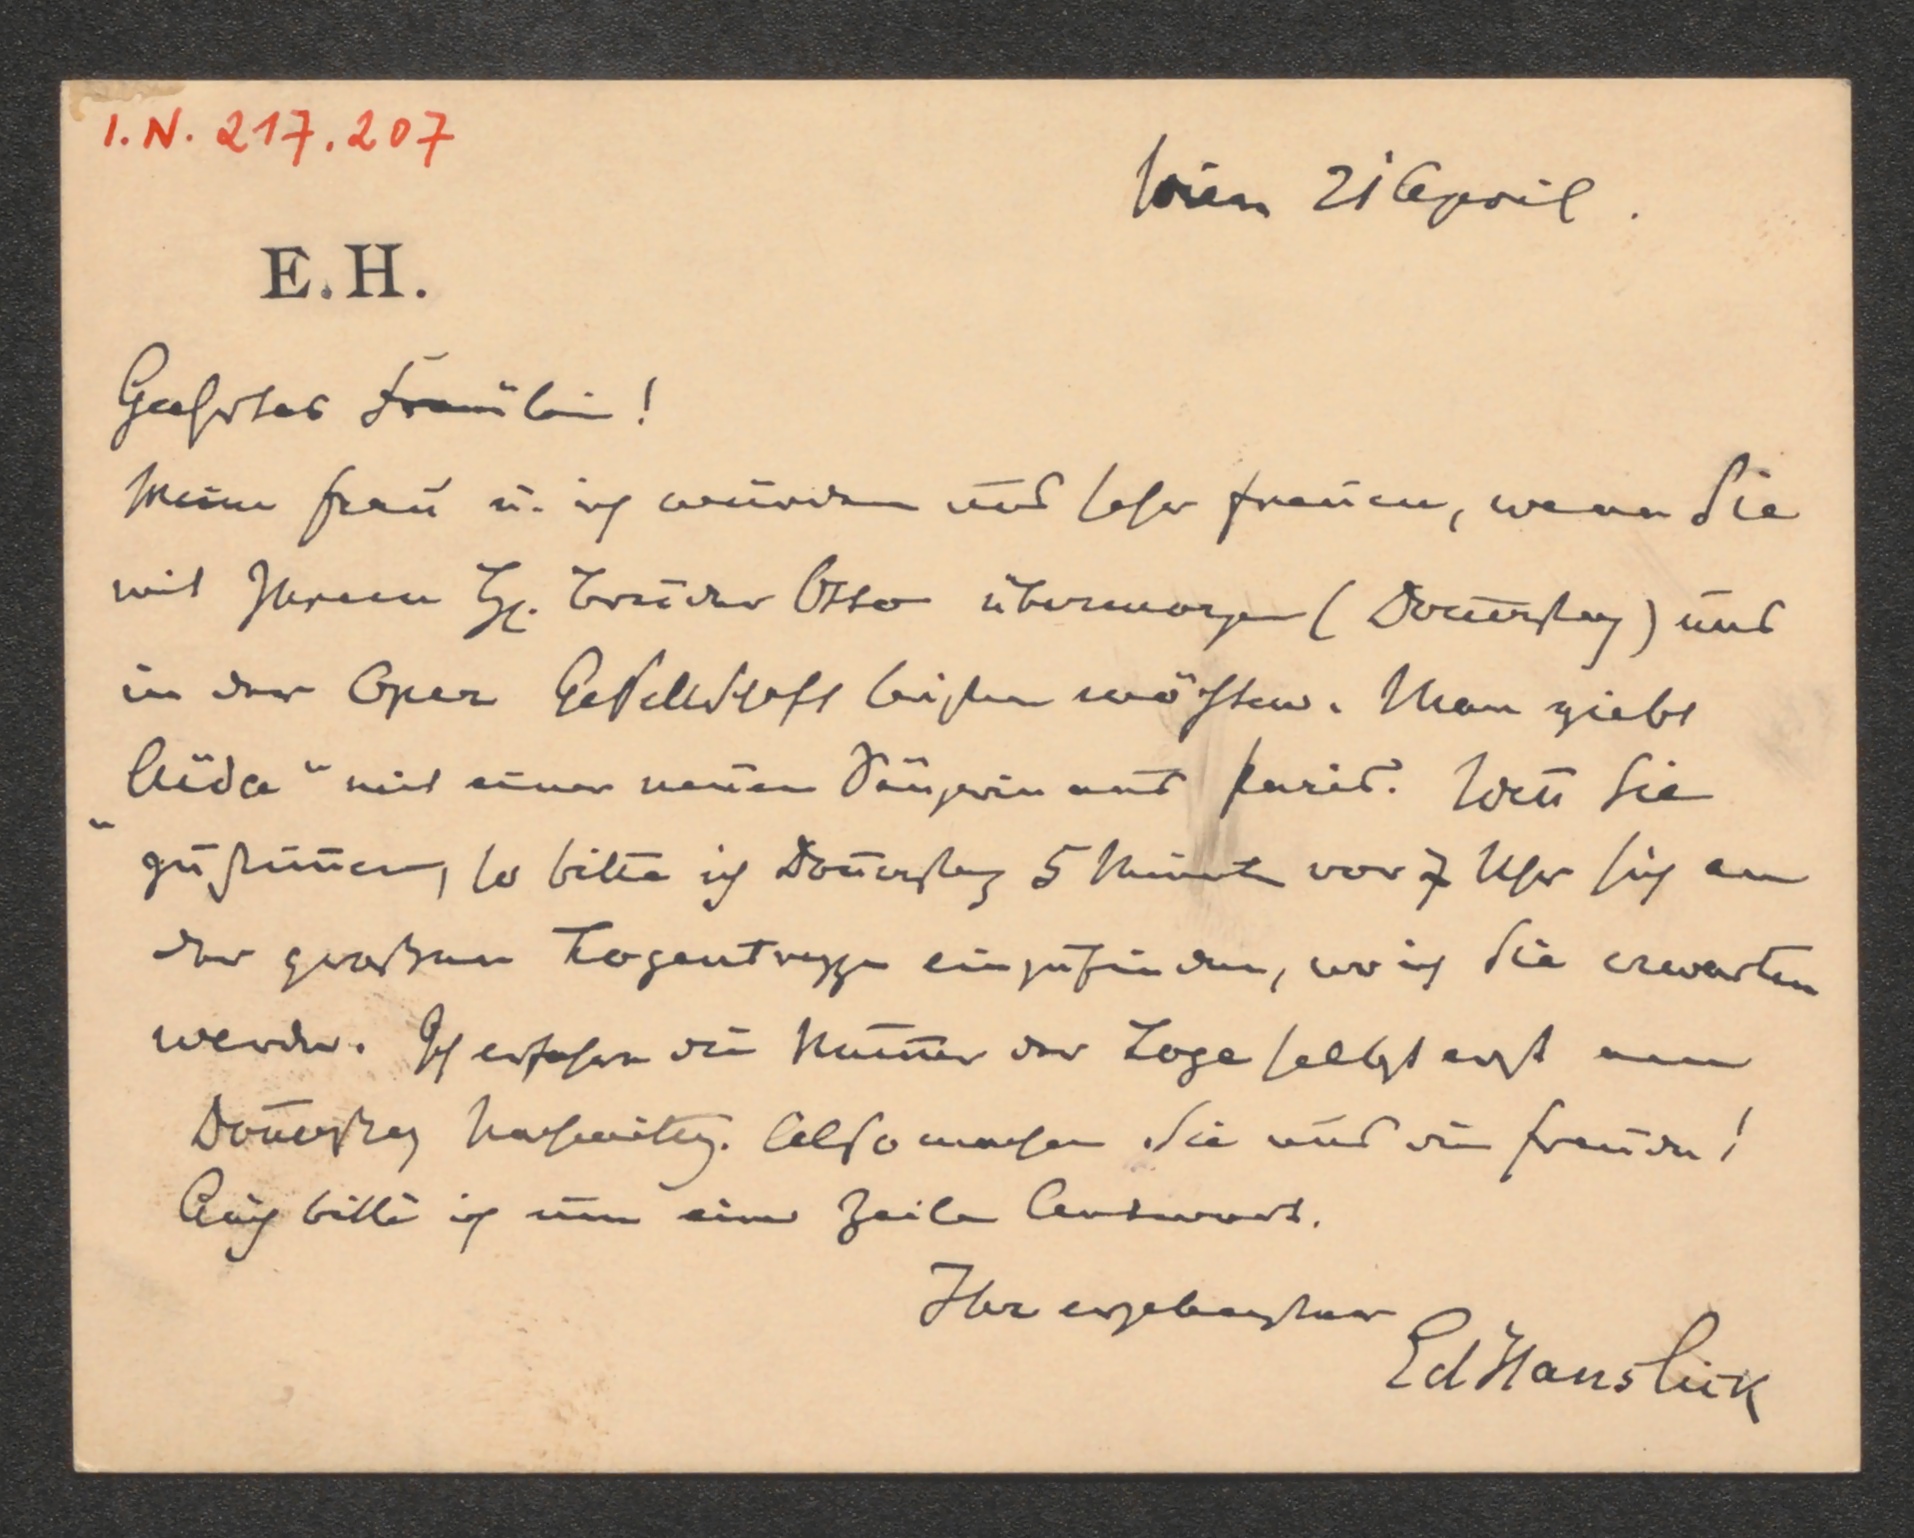 I.N. 217.207
Wien 21 April.
E.H.
Geehrtes Fräulein!
Meine Frau u. ich würden uns sehr freuen, wenn Sie
mit Ihrem H. Bruder Otto übermorgen (Donnerstag) uns
in der Oper Gesellschaft leisten möchten. Man giebt
„Aïda“ mit einer neuen Sängerin aus Paris. Wen̄ Sie
zustim̄en, so bitte ich Don̄erstag 5 Minuten vor 7 Uhr sich an
der großen Logentreppe einzufinden, wo ich Sie erwarten
werde. Ich erfahre die Num̄er der Loge selbst erst am
Don̄erstag Nachmittag. Also machen Sie uns die Freude!
Auch bitte ich um eine Zeile Antwort.
Ihr ergebenster
Ed Hanslick